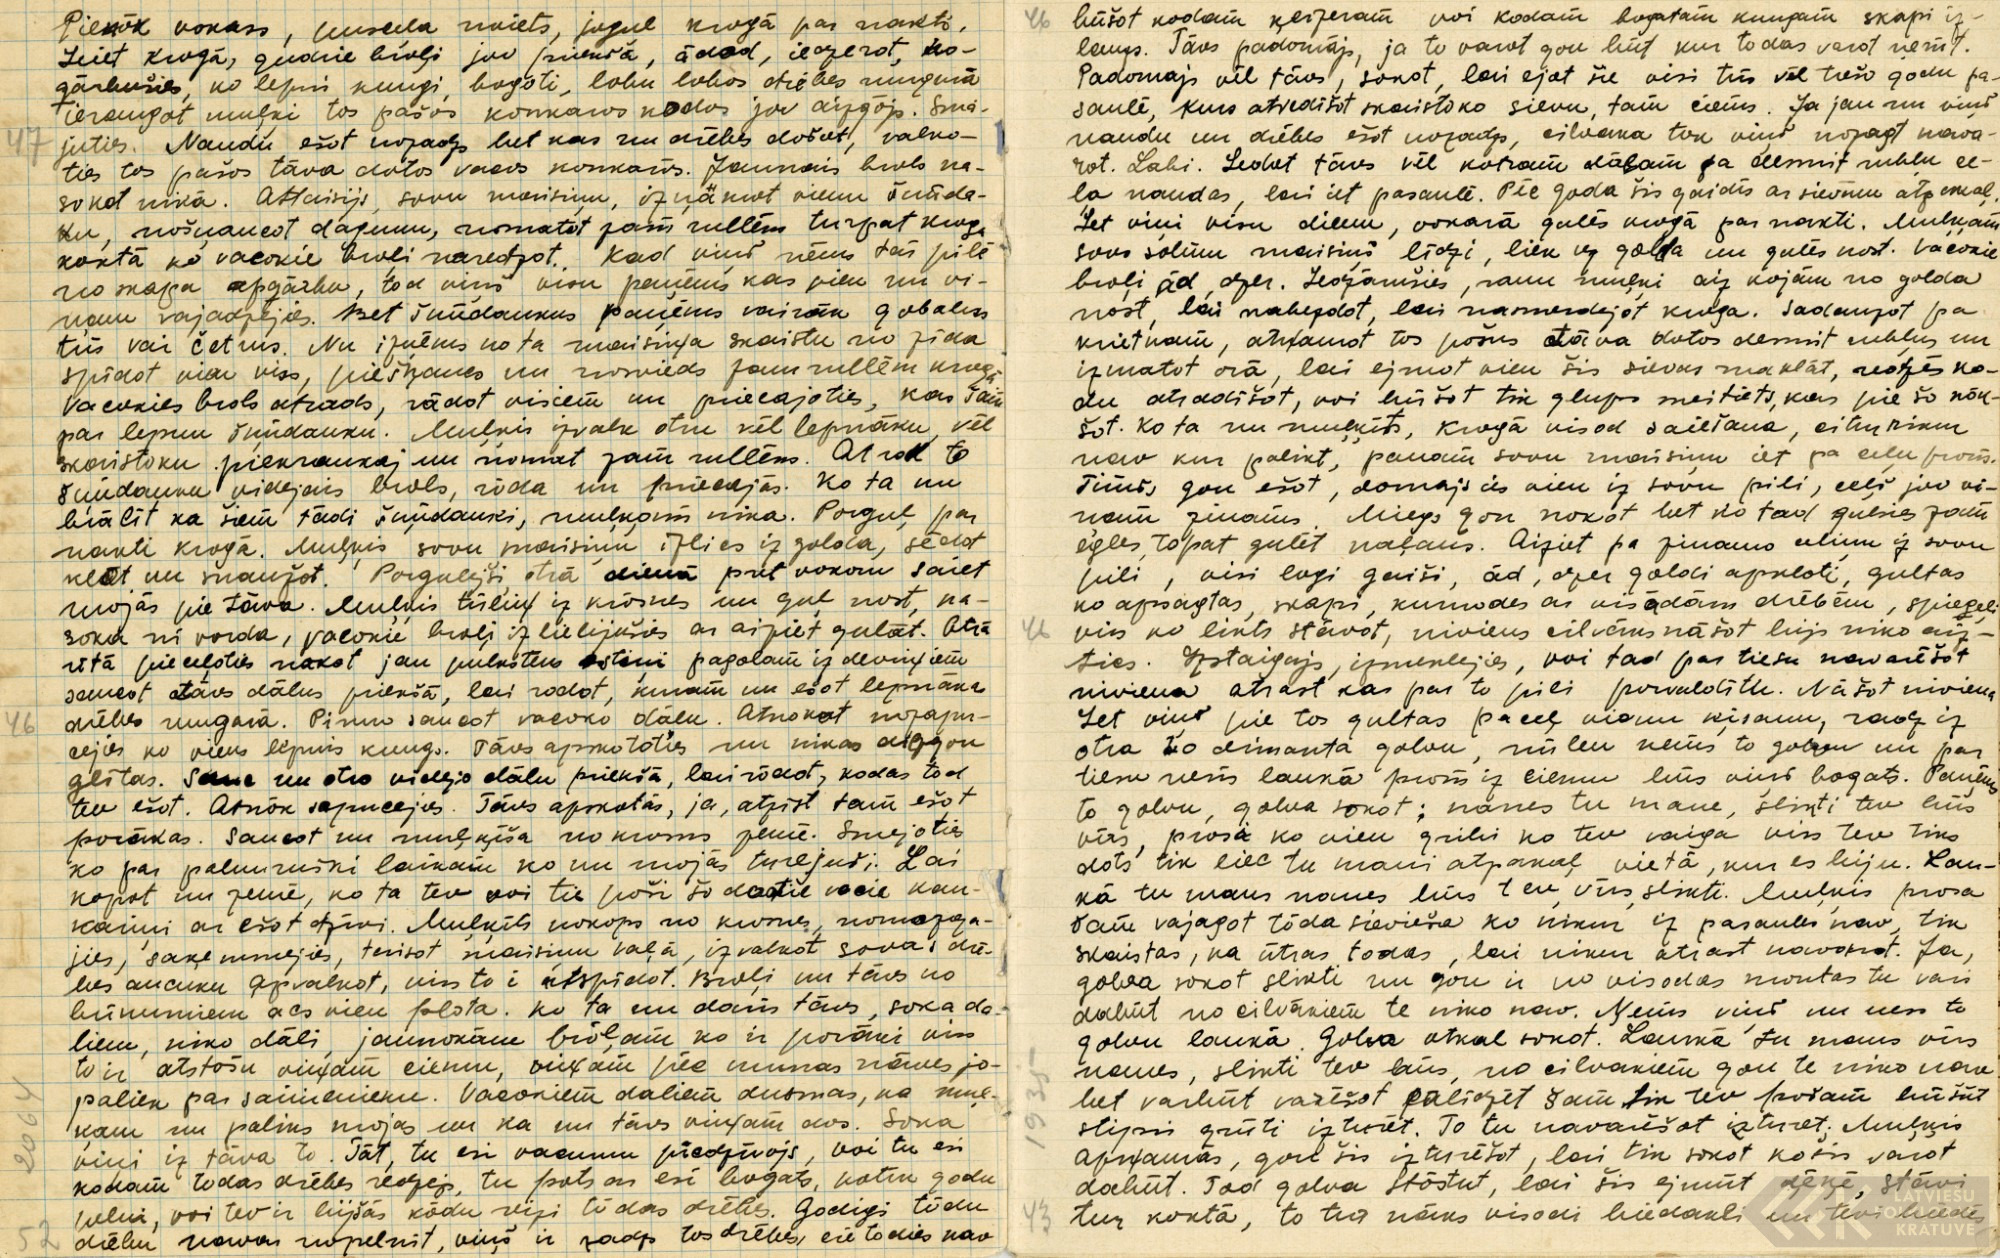 Pienāk vokars, puseda noiets, jogul krogā par nakti.
Ieiet krogā, gudrie broļi jov priekšā, ādod, iedzerot, so-
ģērbušies, ko lepni kungi, bogāti, lobu lobos drēbes mugurā
ieraugot muļķi tos pašos konkaros nodos jov aizgājs. Smi-
47 juties. Naudu ešot nozadzs bet kas nu drēbes došot, valko-
ties tos pašos tāva dotos vacos konkaros. Jaunais brols na-
sokot nikā. Attaisijs sovu maisiņu, izņāmot vienu šņūda-
ku, nošņaucot dagunu, nomatot zam rullēm turpat kroga
koktā ko vacokie broļi naredzot. Kad viņš nēms tās pilē
no skapa apģārbu, tod viņš visu paņēms kas vien un vi-
nam vajadzējies. Bet šņūdaukus paņēms vairāk gobalus
trīs vai četrus. Nu izņēms no ta maisiņa skaistu no zīda
spīdot vien viss, piešņaucs un nosvieds zam rullēm krogā
Vacokies brols atrads, rādot visiem un priecajoties, kas šam
par lepnu šņūdauku. Muļķis izvalk otru vēl lepnāku, vēl
skaistoku piekraukāj un nomat zam rullēms. Atrod to
šņūdauku vidējais brols, rāda un priecājās. Ko ta nu
brālīt ka šiem tādi šņūdauki, muļķam nika. Porguļ par
nakti krogā. Muļķis sovu maisiņu izlicis iz golda, sēdot
klāt un snaužot. Porgulējši otrā dienā pret vokoru saiet
mojās pie tāva. Muļķis tūliņ iz krāsnes un guļ nost, na-
soka ni vorda, vacokie broļi izlielijušies ar aiziet gulāt. Otrā
rītā pieceloties nakot jau pulkstens astoņi pagolam iz deviņiem
saucot tāvs dālus priekšā, lai rodot, kuram nu ešot lepnākas
46 drēbes mugarā. Pirmo saucot vacoko dālu. Atnokot nozapu-
cejies ko viens lepnis kungs. Tāvs apskototies nu nikas
glītas. Sauc nu otro vidējo dālu priekšā, lai rādot, kodas tod
tev ešot. Atnāk sapucejies. Tāvs apskotās, ja, atzīst tam ešot
porākas. Saucot nu muļķīša no krosns zemē. Smejoties
ko par palnurušķi laikam ko nu mojās turejuši. Lai
kopot nu zemē, ko ta tev voi tie poši šo dotie vocie kon-
kariņi ar ešot dzīvi. Muļķīts nokops no krosnes, nomozga-
jies, saķemmejies, taisot maisiņu vaļā, izvalkot sovas drē-
bes aucuku apvalkot, viss to i atspīdot. Broļi un tāvs no
brīnumiem acs vien plota. Ko ta nu doris tāvs, soka dā-
liem, niko dāli, jaunokām brāļam ko ir porāki viss
to ir atstošu viņam ciemu, viņam pēc munas nāves jo-
paliek par saimenieku. Vacokiem daliem dusmas, ka muļ-
2064 kam nu paliks mojas un ka nu tāvs viņam dos. Soka
viņi iz tāva to. Tāt, tu esi vacumu piedzīvojs, voi tu esi
kodam todas drēbes redzejs, tu pots ar esi bogats, kotru godu
pelni, voi tev ir bijšās kādu reizi tādas drēbes. Godīgi tādu
52 drēbu navar nopelnīt, viņš ir zadzs tos drēbes, cie todies nav
46 būšot kodam ķeizeram voi kodam bogatam kungam skapi iz-
lauzs. Tāvs padomājs, ja to varot gon būt kur todas varot nemt.
Padomajs vēl tāvs, sokot, lai ejot šie visi trīs vēl trešo godu pa-
saulē, kurs atvedīšot skaistoko sievu, tam ciems. Ja jau nu viņš
naudu un drēbes ešot nozadzs, cilvaka tok viņš nozagt nava-
rot. Labi. Iedot tāvs vēl kotram dāļam pa desmit rubļu ce-
la naudas, lai iet pasaulē. Pēc goda šis gaidis ar sievām atpakaļ.
Iet viņi visu dienu, vokarā gulēs krogā par nakti. Muļķam
sovs solmu maisiņš līdzi, liek uz golda un gulēs nost. Vacokie
broļi ād, dzer. Iedzāmušies, rauu muļķi aiz kojām no golda
nost, lai nabezdot, lai nasmerdejot kroga. Sadauzot pa
krietnam, atņamot tos pošus tāva dotos desmit rubļus un
izmatot orā, lai ejmot vien šis sievas maklāt, redzēs ko-
du atradīšot, voi būšot tik glups meitiets, kas pie šo nāk-
šot. Ko ta nu muļķīts, krogā visod saiešana, citur nikur
nav kur palikt, panam sovu maisiņu iet pa ceļu proms.
Tūmšs gon ešot, domajs ies vien iz sovu pili, ceļš jov vi-
nam zinams. Miegs gon nokot bet ko tad gulsies zam
egles, topat gulēt naļaus. Aiziet pa zinamo celiņu iz sovu
pili, visi logi gaiši, ād, dzer goldi apkloti, gultas
ko apsagtas, skapi, kumodes ar visādām drēbēm, spieģeļi
46 viss ko likts stāvot, niviens cilvāks nāšot bijs niko aiz-
ties. Izstaigajs, izmeklejies, voi tad par tiesu navarēšot
niviena atrast kas par to pili porvaldītu. Nāšot niviena
Iet viņš pie tos gultas paceļ vianu ķisanu, radz iz
otra to dimanta golvu, nūleu nems to golvu un par
tiesu ness laukā proms iz ciemu būs viņš bogats. Paņēms
to golvu, golva sokot: nānes tu mane, šlikti tev būs
vīrs, prosi ko vien gribi ko tev vaiga viss tev tiks
dots tik liec tu mani atpakaļ vietā, kur es biju. Lau-
kā tu mans nanes būs tev vīrs slikti. Muļķis prosa
šam vajagot tāda sieviša ko nikur iz pasaules nav, tik
skaistas, ka ūtras todas, lai nikur atrast navorot. Ja,
golva sokot slikti nu gon ir no visodas montas tu vari
dabūt no cilvākiem te niko nav. Nems viņš nu ness to
golvu laukā. Golva atkal sokot. Laukā tu mans vīrs
1935 nanes, slikti tev būs, no cilvakiem gon te niko nav
bet varbūt varēšot palidzēt šam tik tev pošam būšūt
stipri grūti izturēt. To tu navarēšot izturet. Muļķis
apņamās, gon šis izturēšot, lai tik sokot ko šis varot
dabūt. Tod golva stāstut, lai šis ejmūt dēķē, stāvi
43 tur koktā, to tur nāks visodi biedakli un tevi biedēs
LATVIEŠU
FOLKLORAS
KRĀTUVE